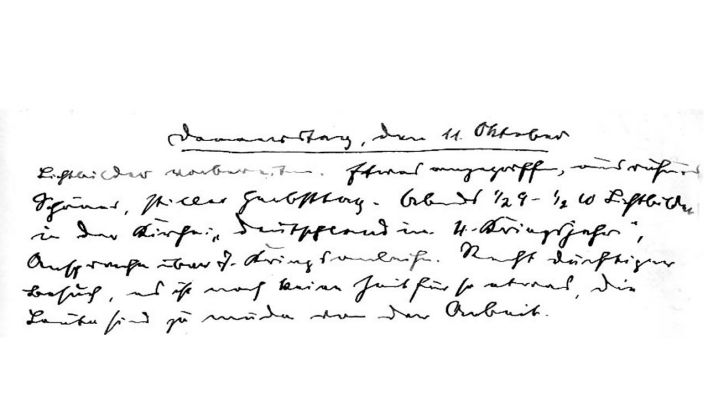 Donnerstag, den 11. Oktober
Lichtbilder vorbereiten. Etwas angegriffen,
Schöner, stiller Herbsttag. Abends ½9-½10 Lichtbilder
in der Kirche: „Deutschland im 4. Kriegsjahr",
Ansprache über 7. Kriegsanleihe. Recht dürftiger
Besuch, es ist noch keine Zeit für so etwas, die
Leute sind zu müde von der Arbeit.